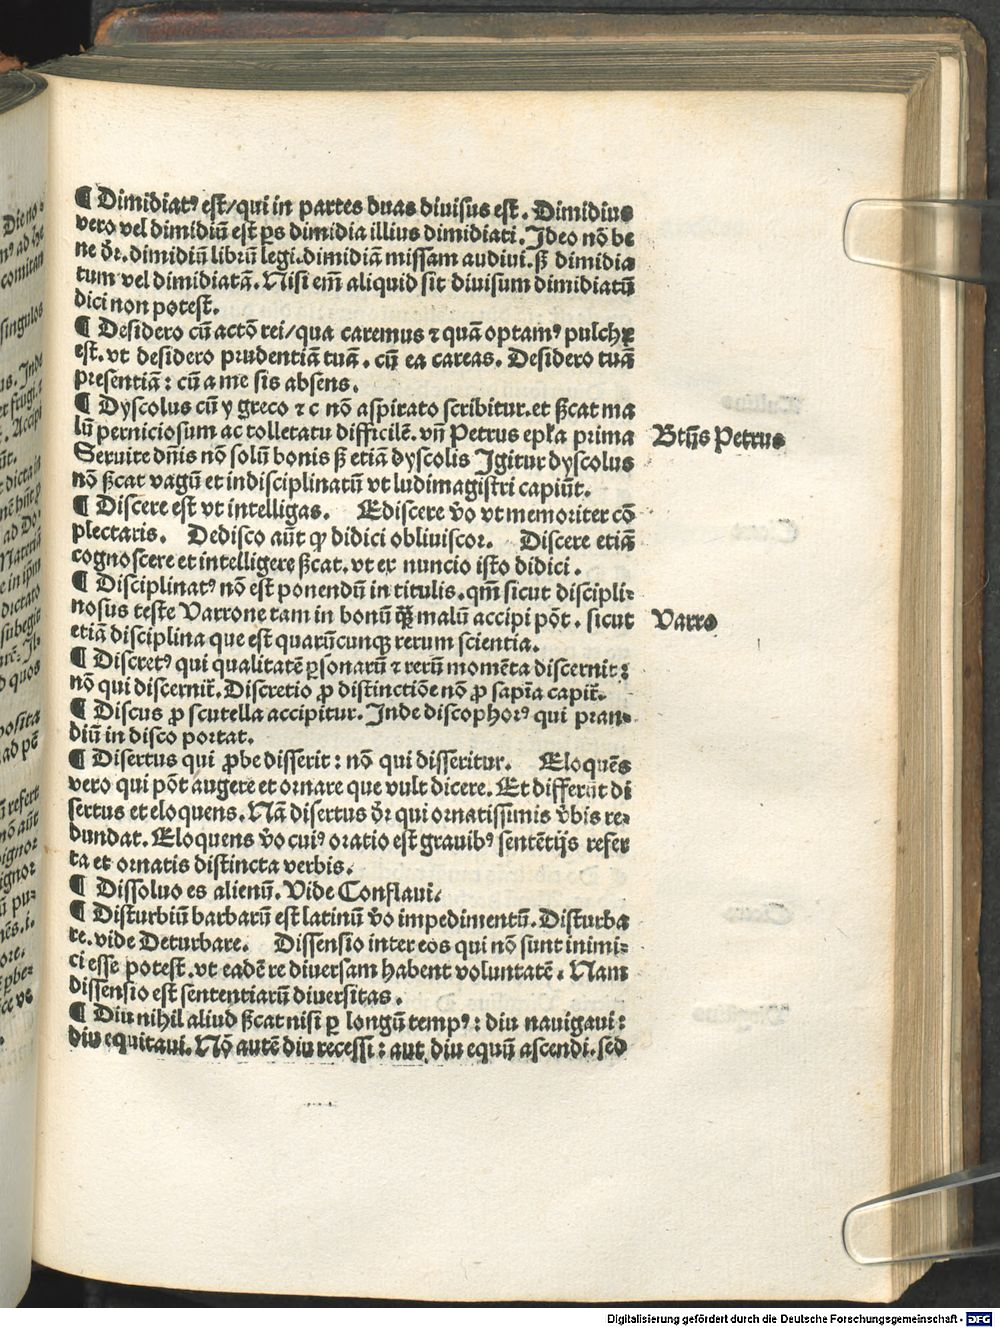 ¶ Dimidiatꝰ est/qui in partes duas divisus est. Dimidius
vero vel dimidiū est ps dimidia illius dimidiati. Ideo nō be
ne dr̄. dimidiū librū legi. dimidiā missam audivi. sꝫ dimidia
tum vel dimidiatā. Nisi em̄ aliquid sit divisum dimidiatū
dici non potest.
¶ Desidero cū actō rei/qua caremus ⁊ quā optamꝰ pulchꝝ
est. vt desidero prudentiā tuā. cū ea careas. Desidero tuā
presentiā: cū a me sis absens.
¶ Dyscolus cū y greco ⁊ c nō aspirato scribitur. et ſcat ma
lū perniciosum ac tolletatu difficilē. vn̄ Petrus epl̄a prima
Btūs Petrus
Servite dn̄is nō solū bonis sꝫ etiā dyscolis Igitur dyscolus
nō ſcat vagū et indisciplinatū vt ludimagistri capiūt.
¶ Discere est vt intelligas. Ediscere v̄o vt memoriter cō
plectaris. Dedisco aūt qꝫ didici obliviscor. Discere etiā
cognoscere et intelligere ſcat. vt ex nuncio isto didici.
¶ Disciplinatꝰ nō est ponendū in titulis. qm̄ sicut discipli⸗
nosus teste Varrone tam in bonū qꝫ̄ malū accipi pōt. sicut
Varro
etiā disciplina que est quarūcunqꝫ rerum scientia.
¶ Discretꝰ qui qualitatē ꝑsonarū ⁊ rerū momēta discernit:
nō qui discernit᷑. Discretio ꝓ distinctiōe nō ꝓ sapīa capit᷑.
¶ Discus ꝓ scutella accipitur. Inde discophorꝰ qui pran⸗
diū in disco portat.
¶ Disertus qui ꝓbe disserit: nō qui disseritur. Eloquēs
vero qui pōt augere et ornare que vult dicere. Et differūt di
sertus et eloquens. Nā disertus dr̄ qui ornatissimis v̄bis re⸗
dundat. Eloquens v̄o cuiꝰ oratio est gravibꝰ sentētijs refer
ta et ornatis distincta verbis.
¶ Dissoluo es alienū. Vide Conflavi.
¶ Disturbiū barbarū est latinū v̄o impedimentū. Disturba
re. vide Deturbare. Dissensio inter eos qui nō sunt inimi⸗
ci esse potest. vt eadē re diversam habent voluntatē. Nam
dissensio est sententiarū diversitas.
¶ Diu nihil aliud ſcat nisi ꝑ longū tempꝰ: diu navigavi:
diu equitavi. Nō autē diu recessi: aut diu equū ascendi. sed
Digitalisierung gefördert durch die Deutsche Forschungsgemeinschaft - DFG